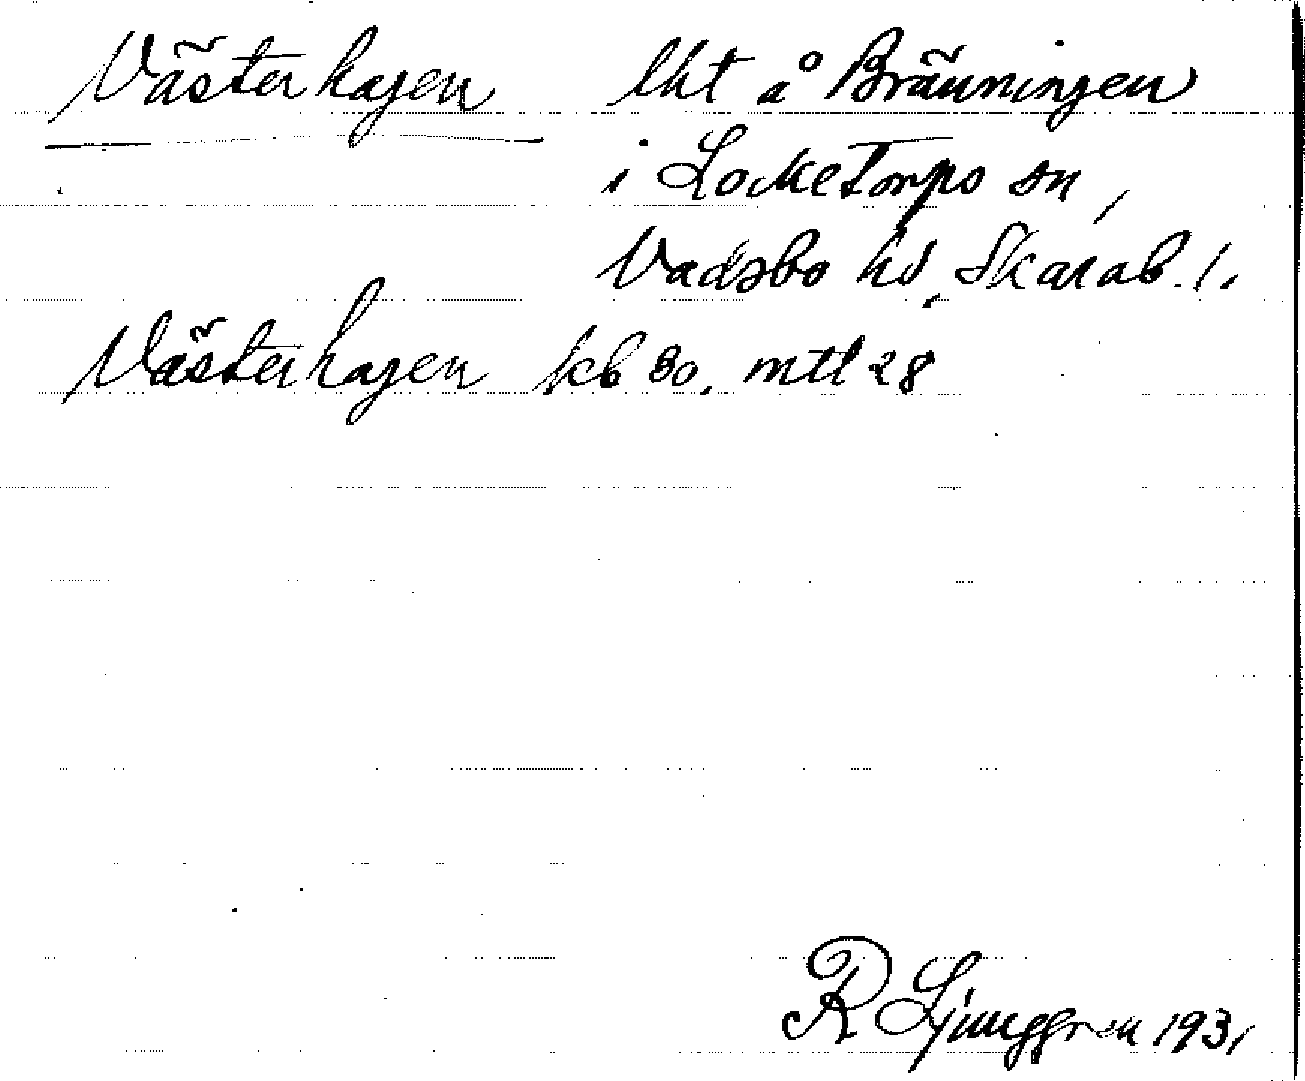 Västerhagen lht å Bränningen
i Locketorps sn,
Vadsbo hd, Skarab. l.
Västerhagen kb 80, mtl 28
R Ljunggren 1931